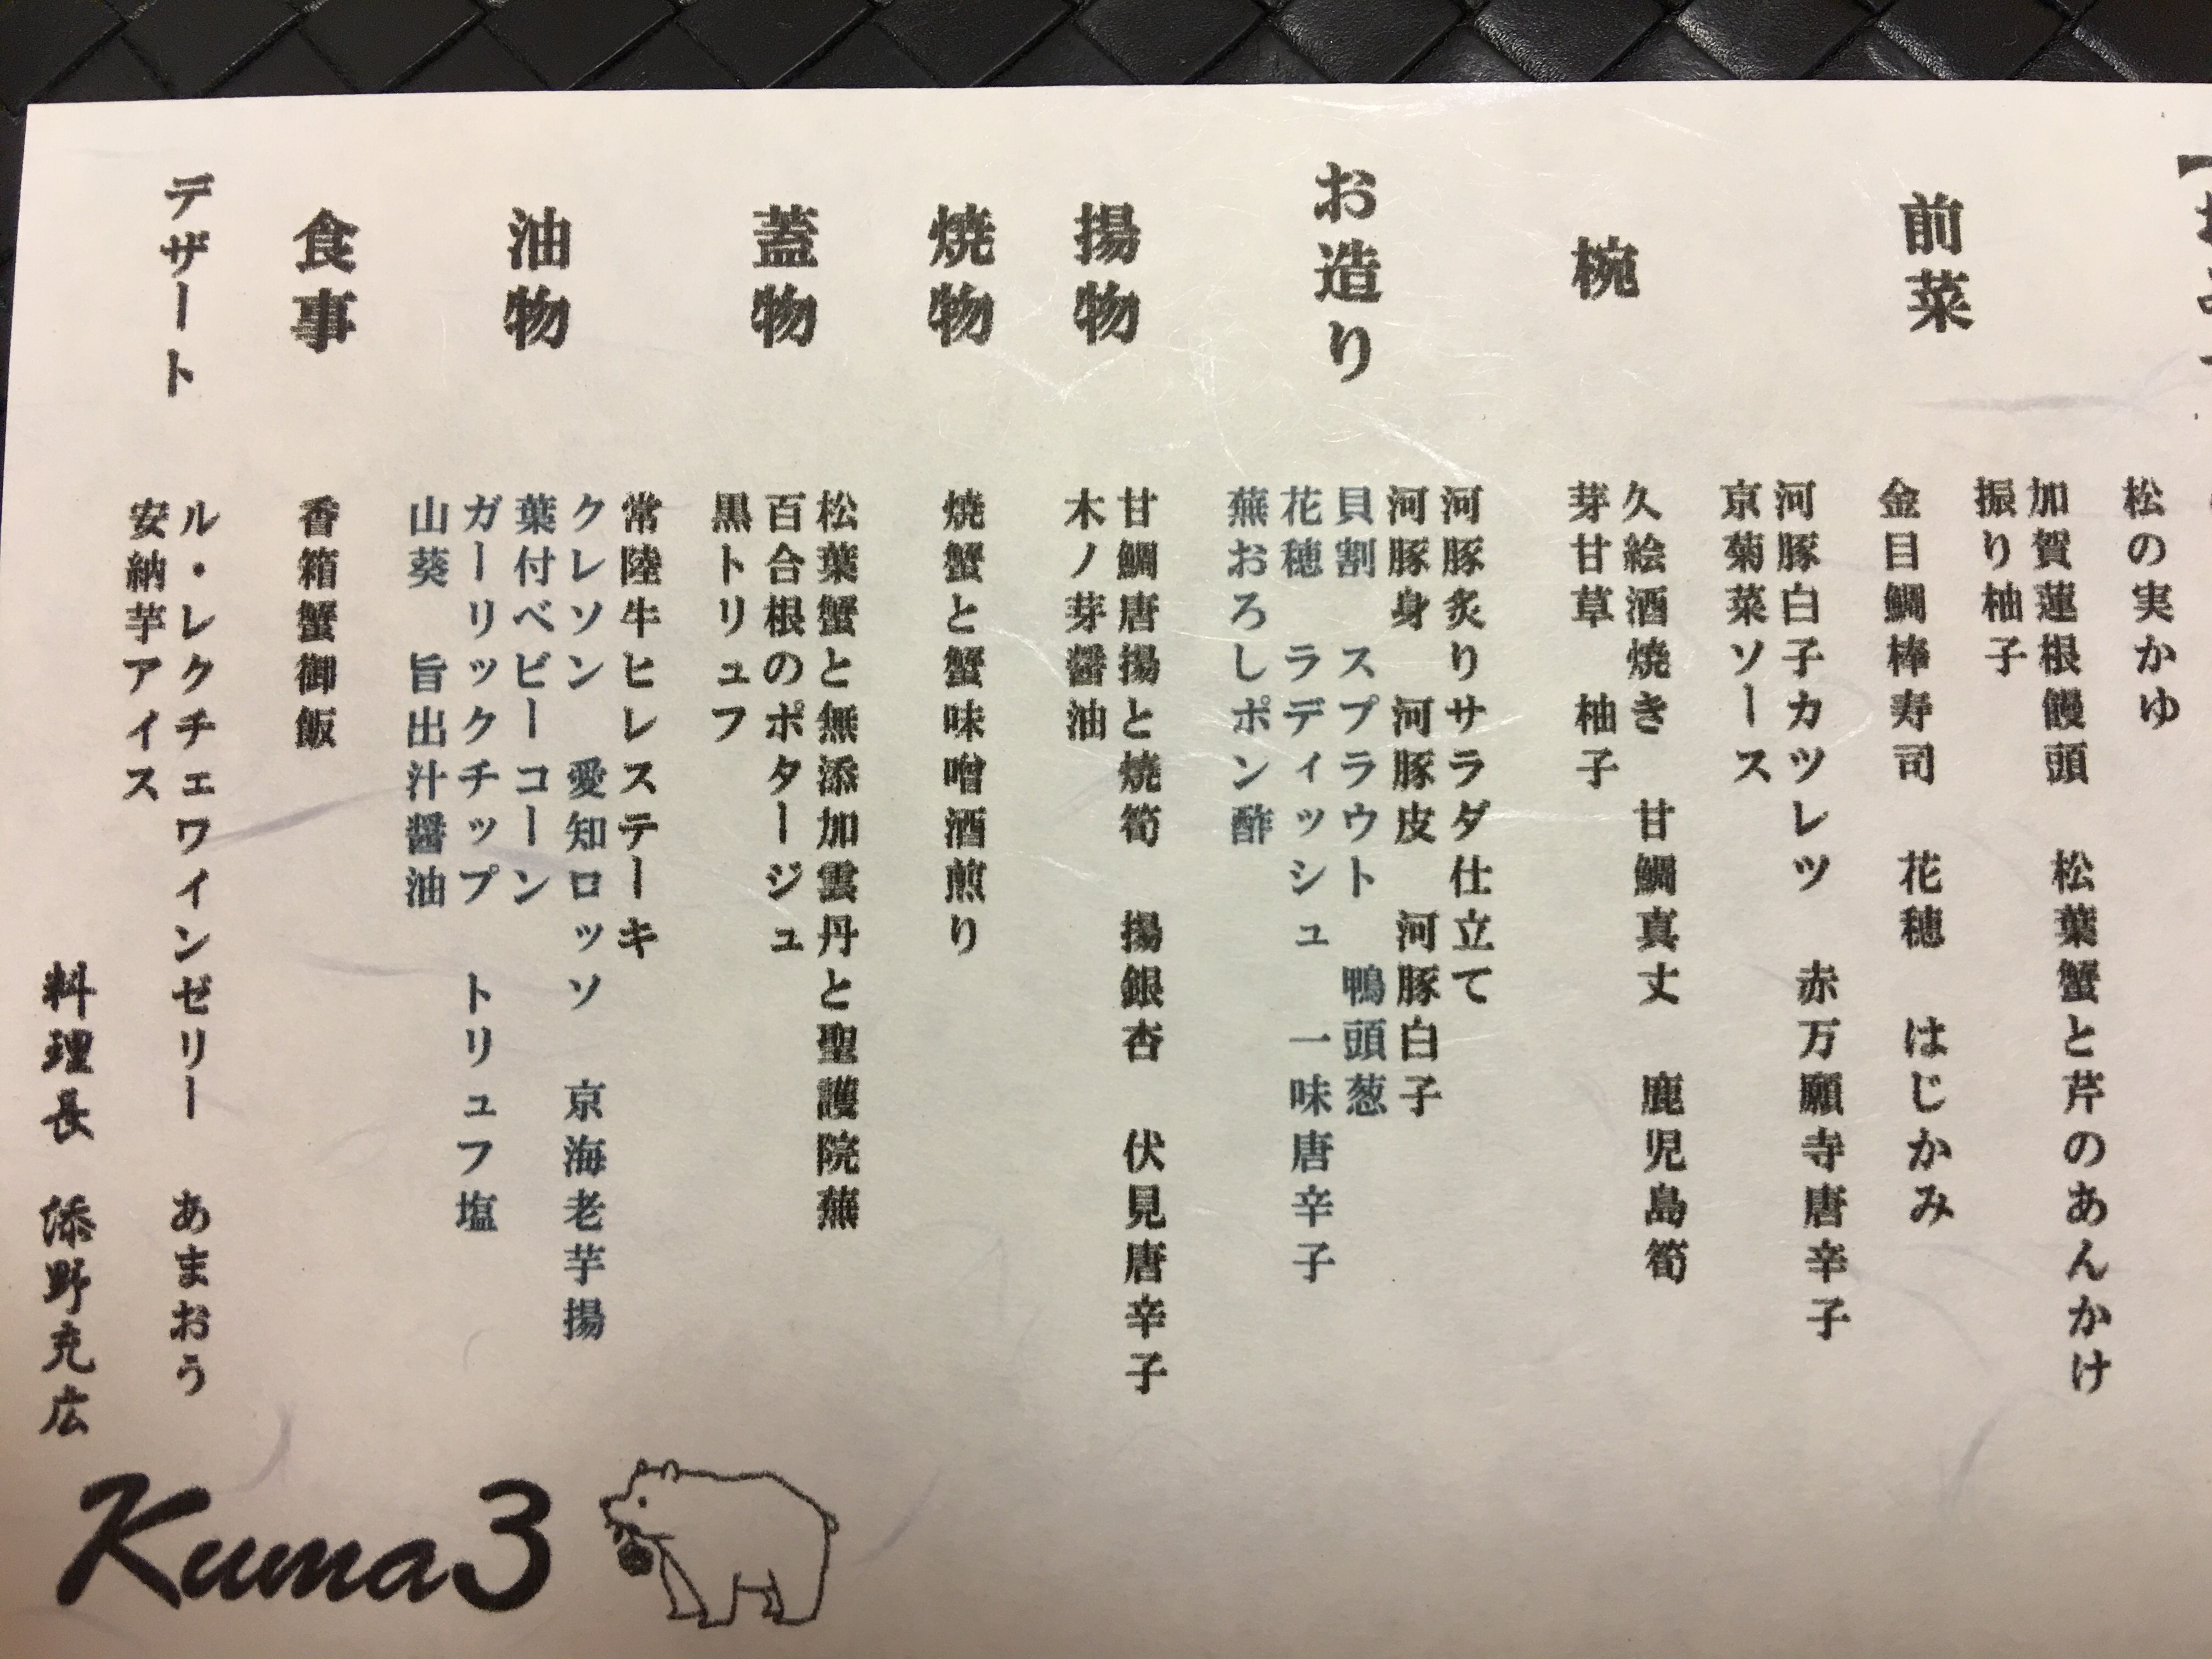 松の実かゆ
前菜
加賀蓮根饅頭　松葉蟹と芹のあんかけ
振り柚子
金目鯛棒寿司　花穂　はじかみ
河豚白子カツレツ　赤万願寺唐辛子
京菊菜ソース
椀
久絵酒焼き　甘鯛真丈　鹿児島筍
芽甘草　柚子
お造り
河豚炙りサラダ仕立て
河豚身　河豚皮　河豚白子
貝割　スプラウト　鴨頭葱
花穂　ラディッシュ　一味唐辛子
蕪おろしポン酢
揚物
甘鯛唐揚と焼筍　揚銀杏　伏見唐辛子
木ノ芽醤油
焼物
焼蟹と蟹味噌酒煎り
蓋物
松葉蟹と無添加雲丹と聖護院蕪
百合根のポタージュ
黒トリュフ
油物
常陸牛ヒレステーキ
クレソン　愛知ロッソ　京海老芋揚
葉付ベビーコーン
ガーリックチップ　トリュフ塩
山葵　旨出汁醤油
食事
香箱蟹御飯
デザート
ル・レクチェワインゼリー　あまおう
安納芋アイス
料理長　添野充広
Kuma3